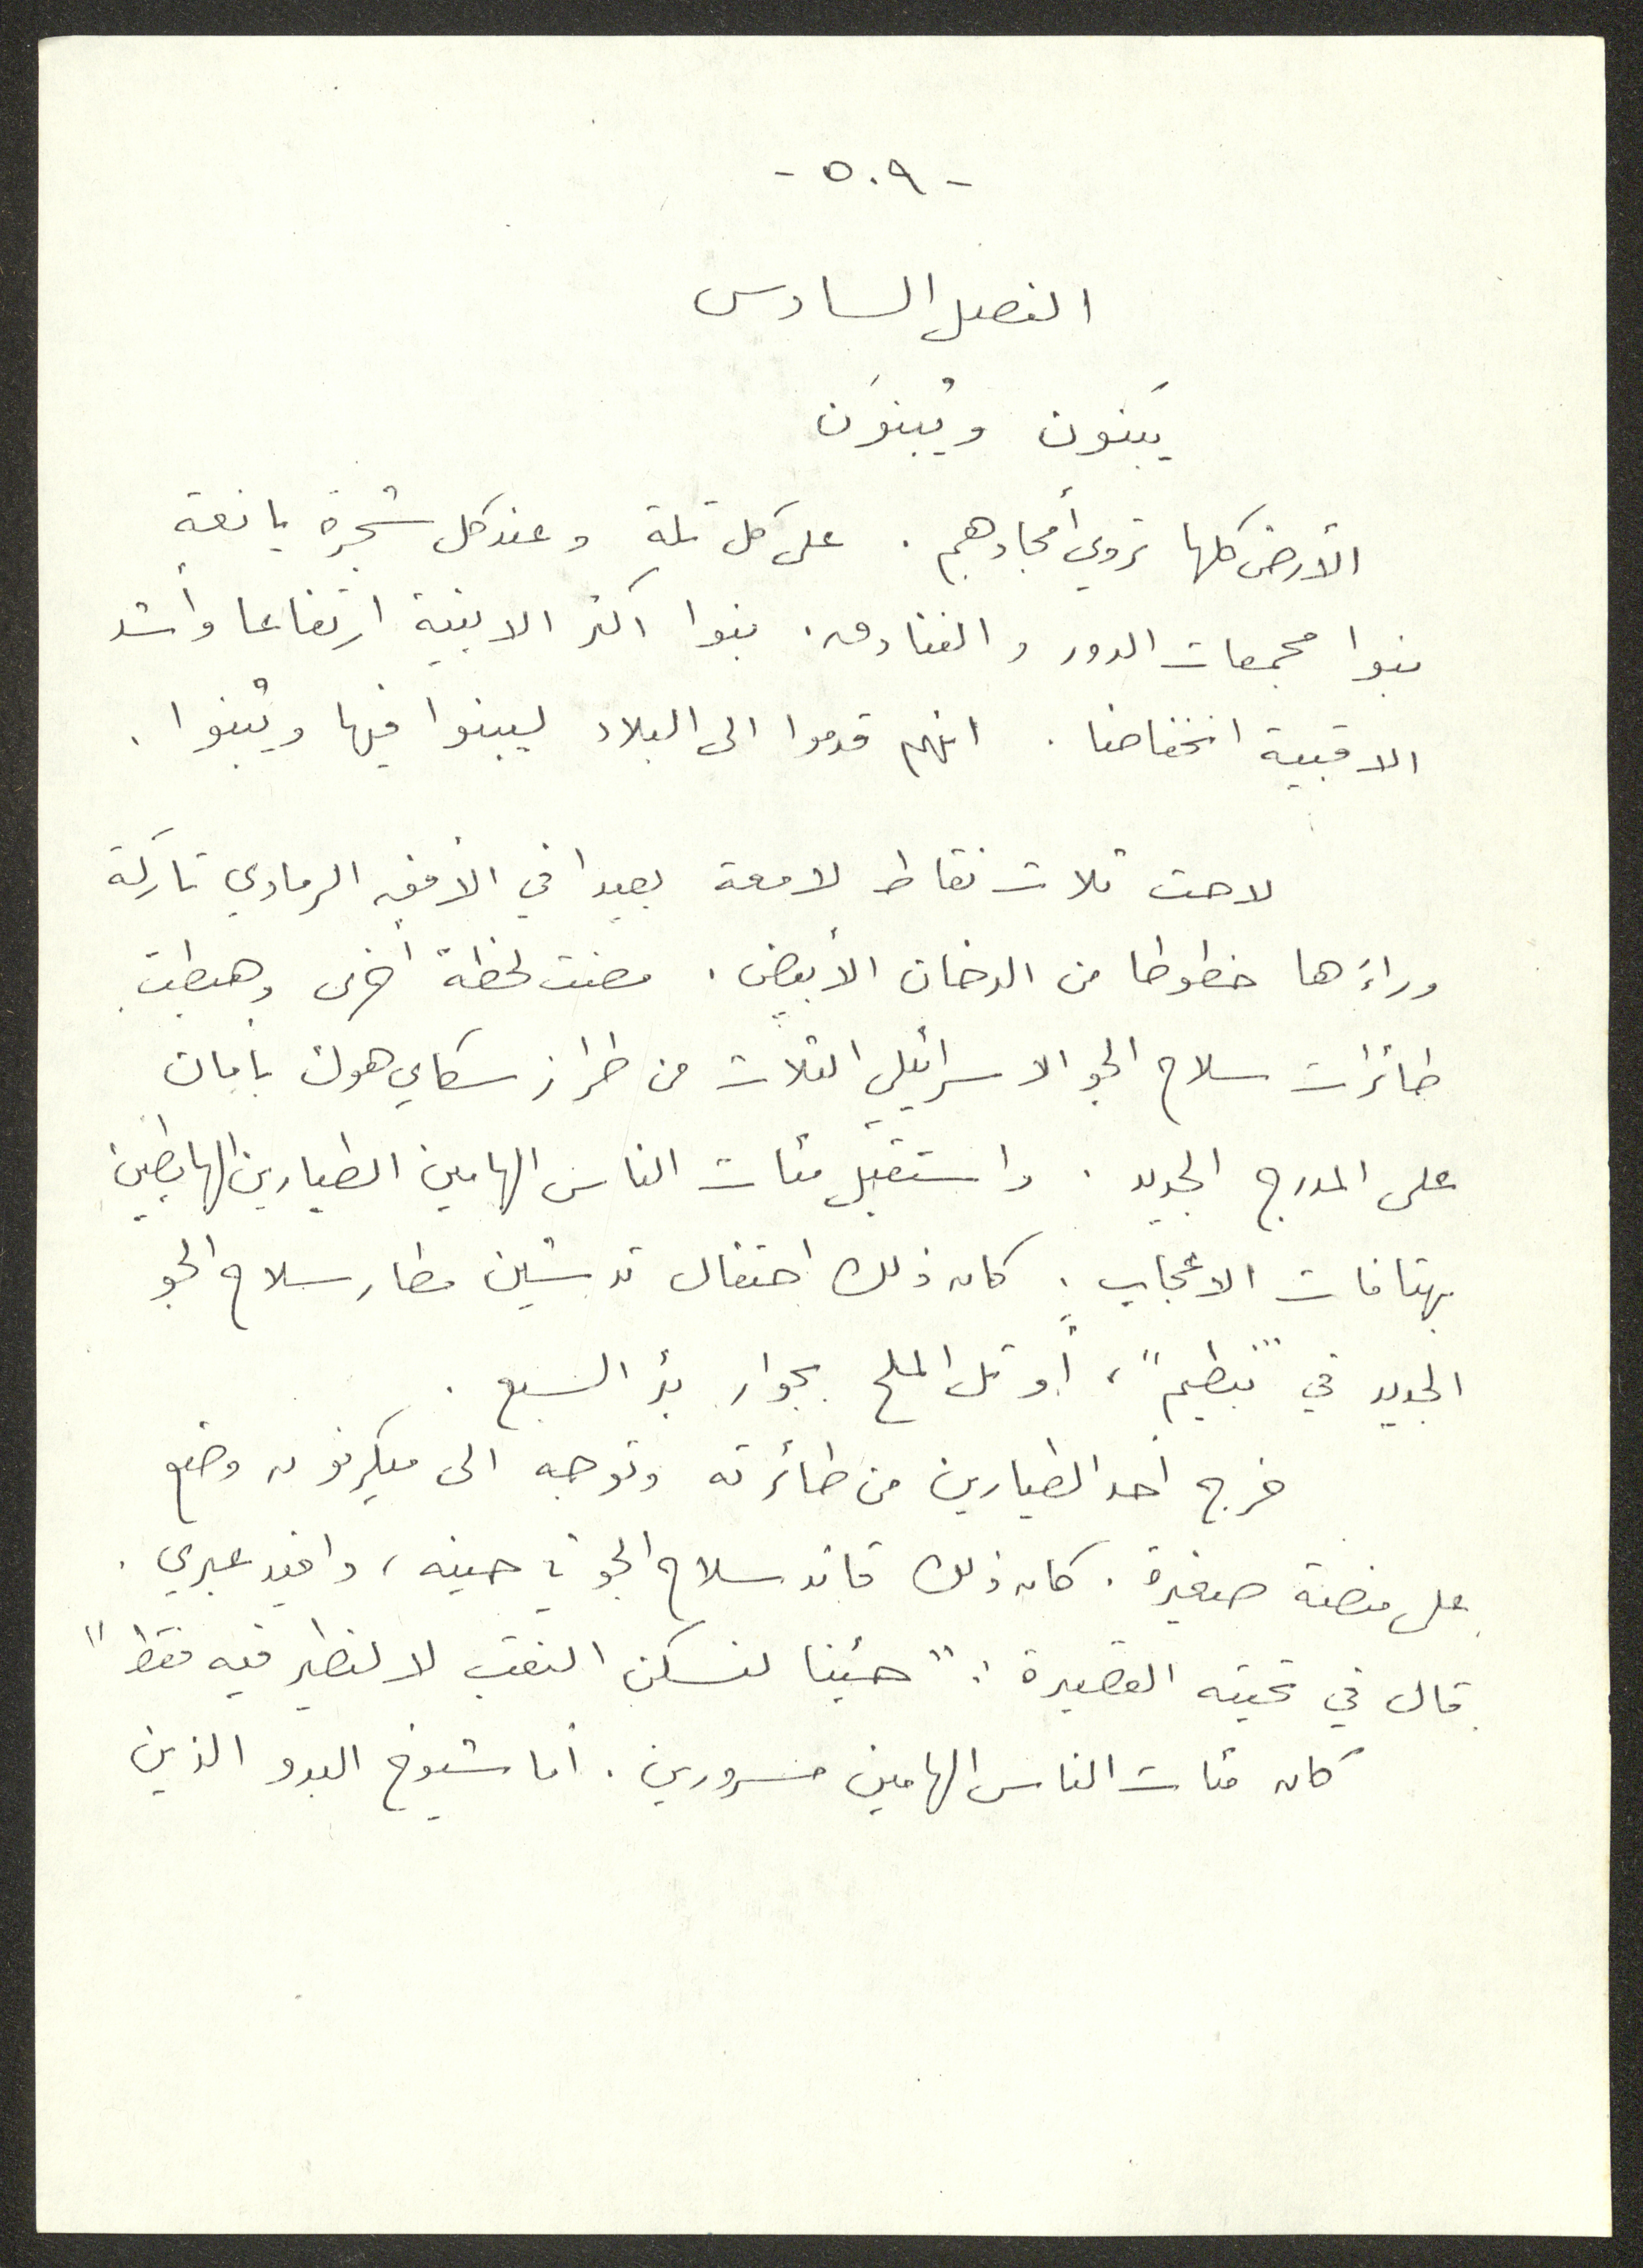 - ٥٠٩ -
الفصل السادس
يَبنون ويُبنَون
الأرض كلها تروي أمجادهم . على كل تلة وعند كل شجرة يانعة
بنوا مجمعات الدور والفنادق . بنوا اكثر الابنية ارتفاعا وأشد
الاقبية انخفاضا . انهم قدموا الى البلاد ليبنوا فيها ويُبنوا .
لاحت ثلاث نقاط لامعة بعيدا في الأفق الرمادي تاركة
وراءها خطوطا من الدخان الأبيض . مضت لحظة أخرى وهبطت
طائرات سلاح الجو الاسرائيلي الثلاث من طراز سكاي هوك بأمان
على المدرج الجديد . واستقبل مئات الناس الهامين الطيارين الهابطين
بهتافات الاعجاب . كان ذلك احتفال تدشين مطار سلاح الجو
الجديد في "نبطيم" ، أو تل الملح بجوار بئر السبع .
خرج أحد الطيارين من طائرته وتوجه الى ميكرفون وضع
على منصة صغيرة . كان ذلك قائد سلاح الجو في حينه ، دافيد عبري .
قال في تحيته القصيرة : "جئنا لنسكن النقب لا لنطير فيه فقط"
كان مئات الناس الهامين مسرورين . أما شيوخ البدو الذين